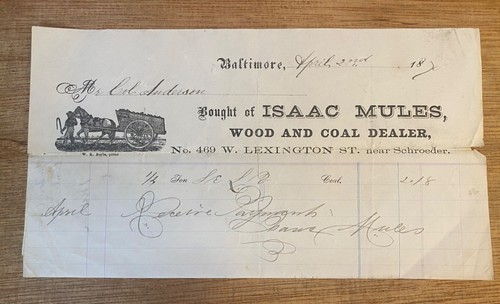 Baltimore, April 2nd 187
Mr Col. Anderson
Bought of ISAAC MULES,
WOOD AND COAL DEALER,
No. 469 W. LEXINGTON ST. near Schroeder.
1/2 Ton Coal, 2.18
April Receive Payment
Isaac Mules